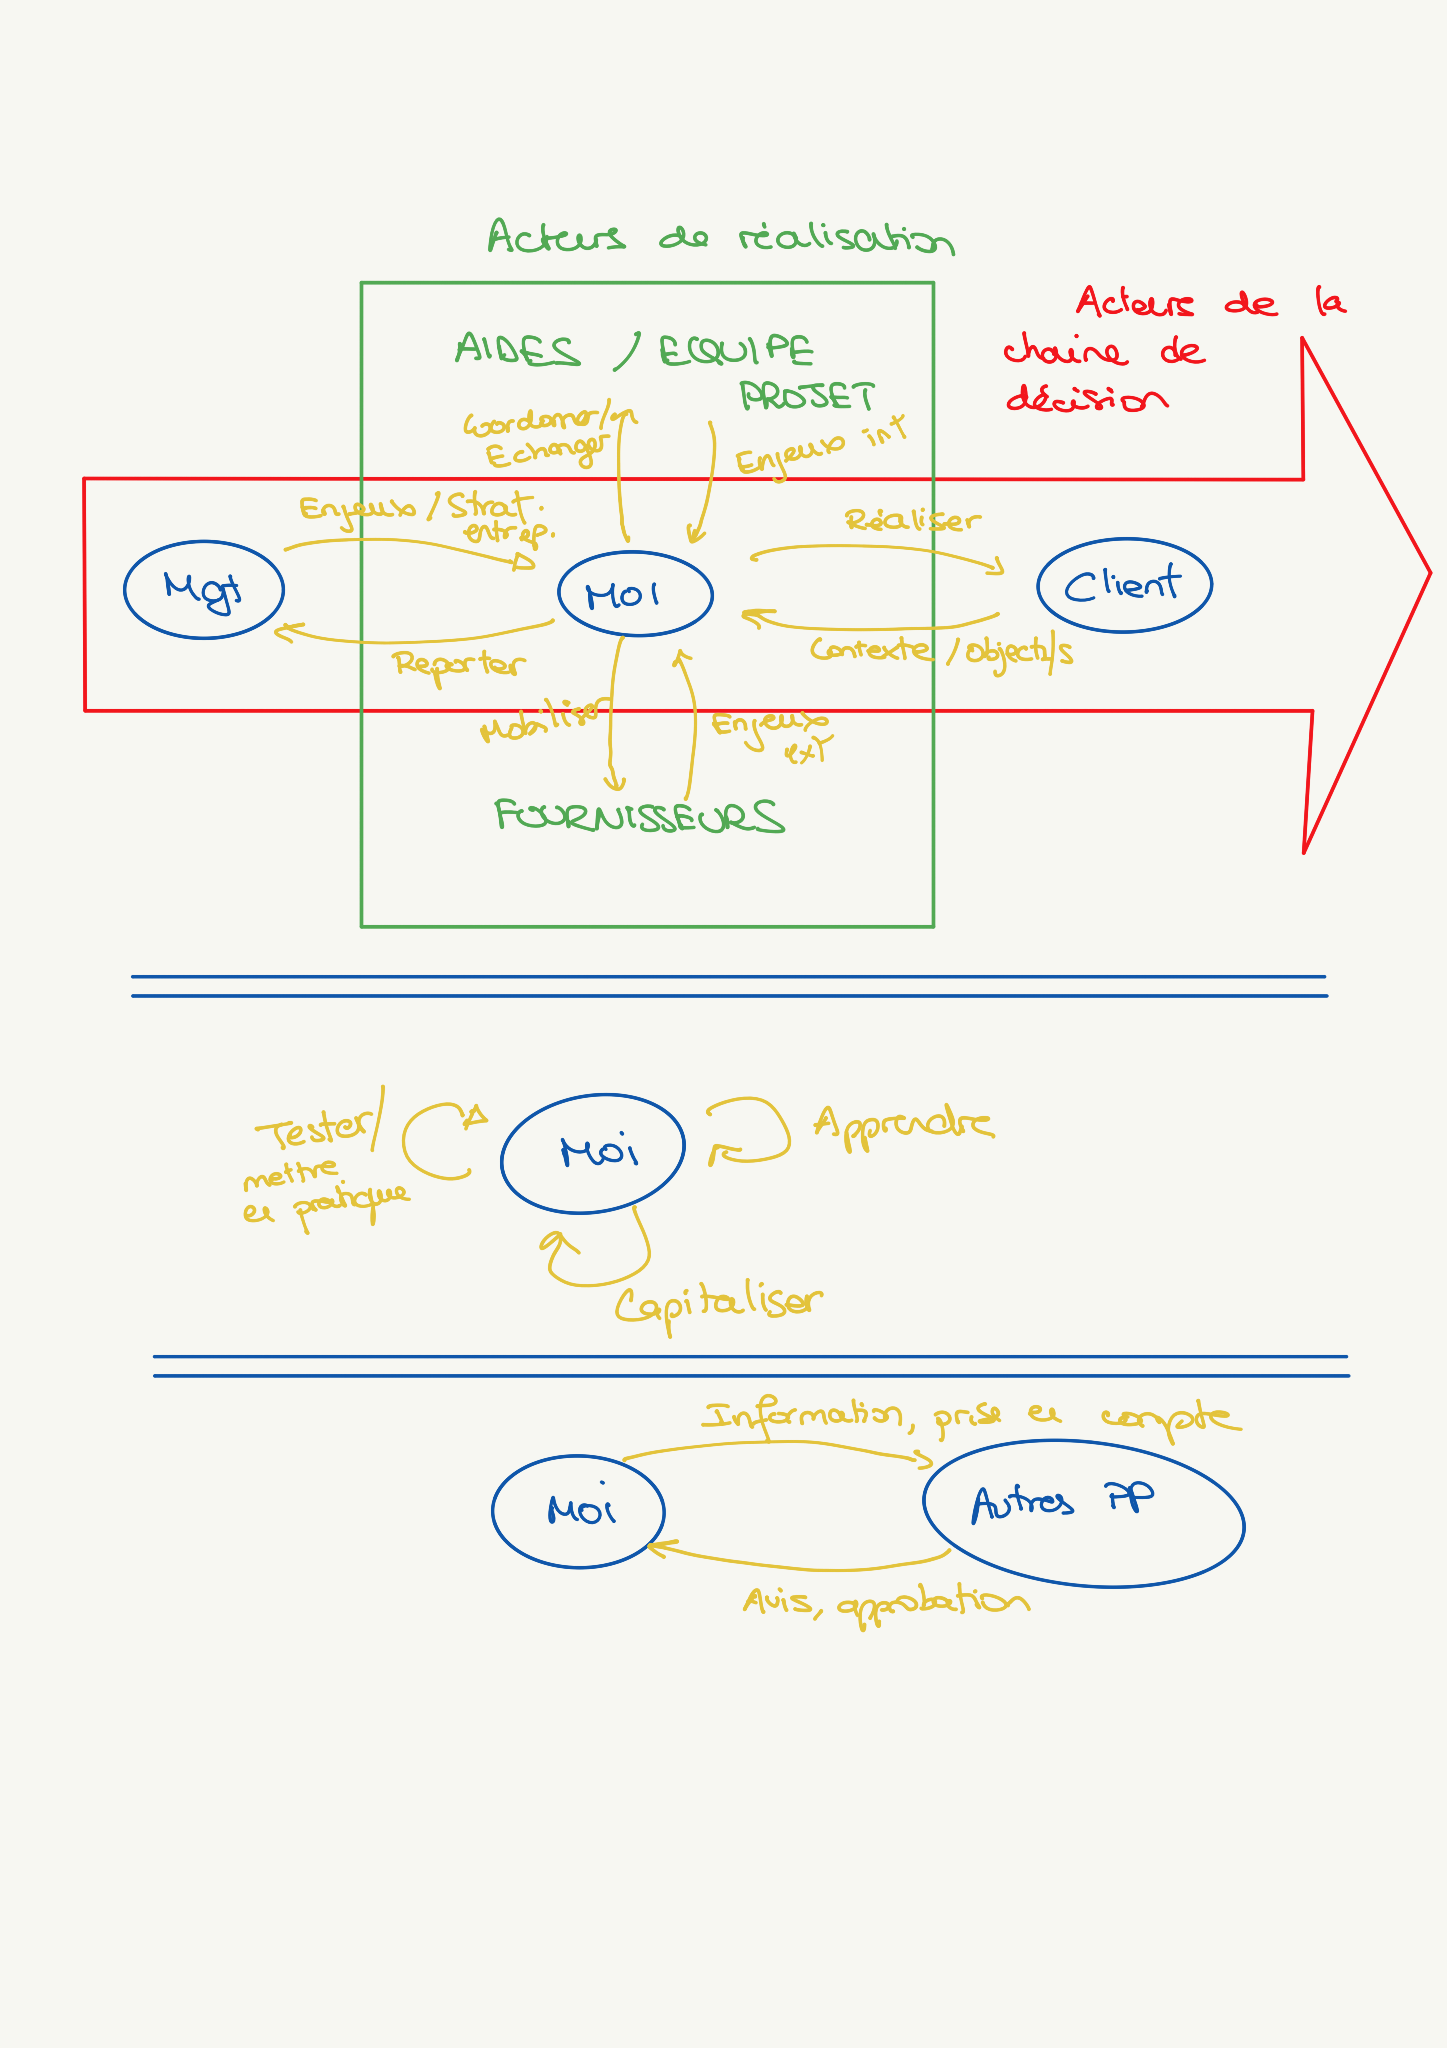 Acteurs de réalisation
Acteurs de la
chaine de
décision
AIDES / EQUIPE
PROJET
Coordonner/
Echanger
Enjeux int
Enjeux / Strat.
entrep.
Réaliser
Mgt
MOI
Client
Reporter
Contexte / Objectifs
Mobiliser
Enjeux
ext
FOURNISSEURS
Tester/
mettre
en pratique
Moi
Apprendre
Capitaliser
Information, prise en compte
Moi
Autres PP
Avis, approbation